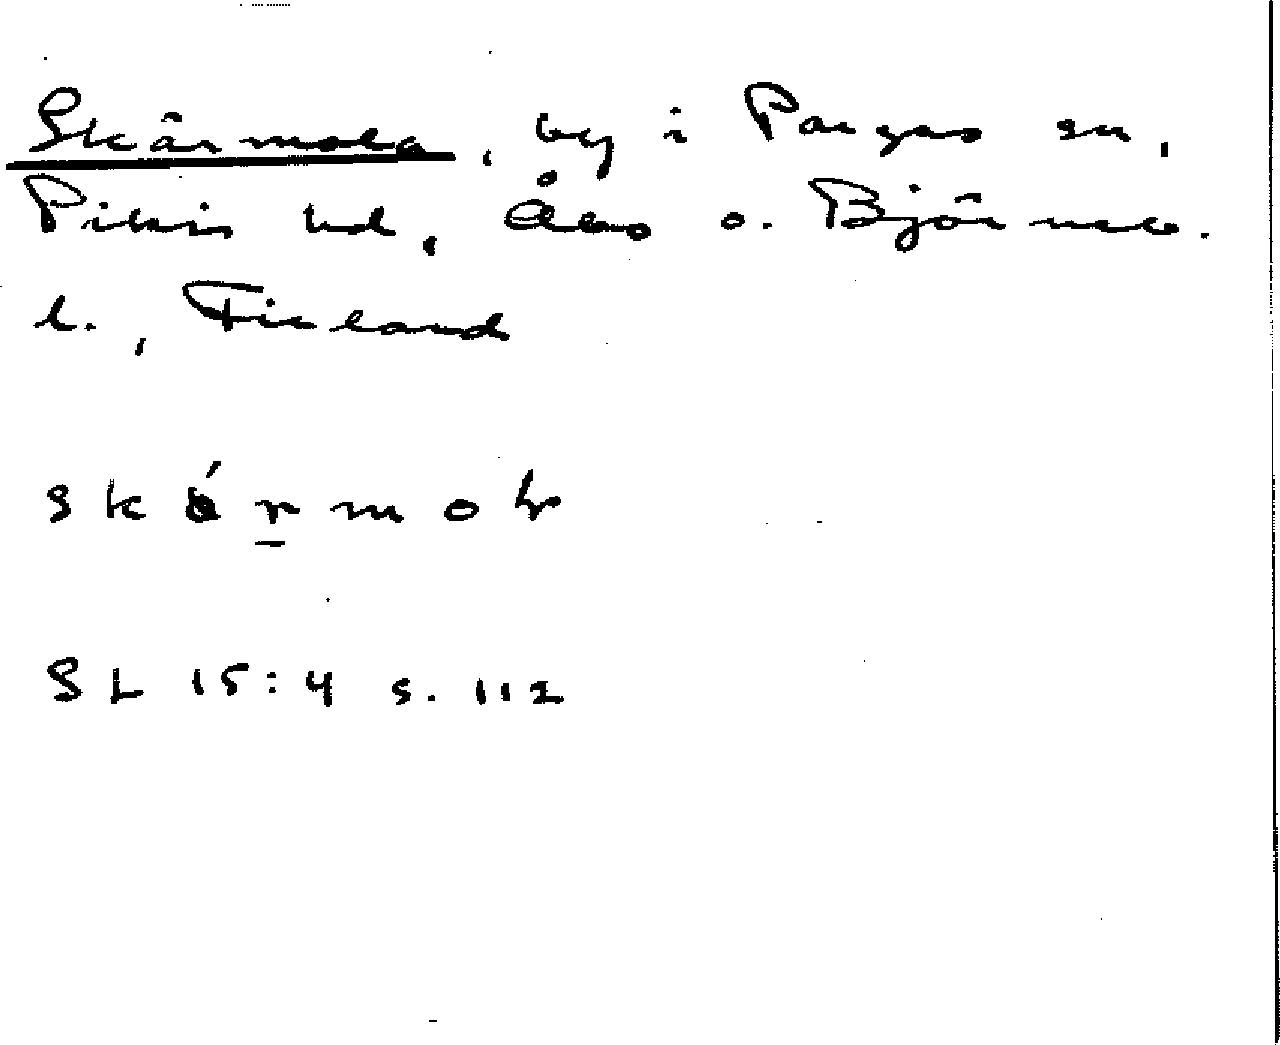 Skärmola, by i Pargas sn,
Pikis hd, Åbo o. Björneb.
l., Finland
SL 15:4 s. 112